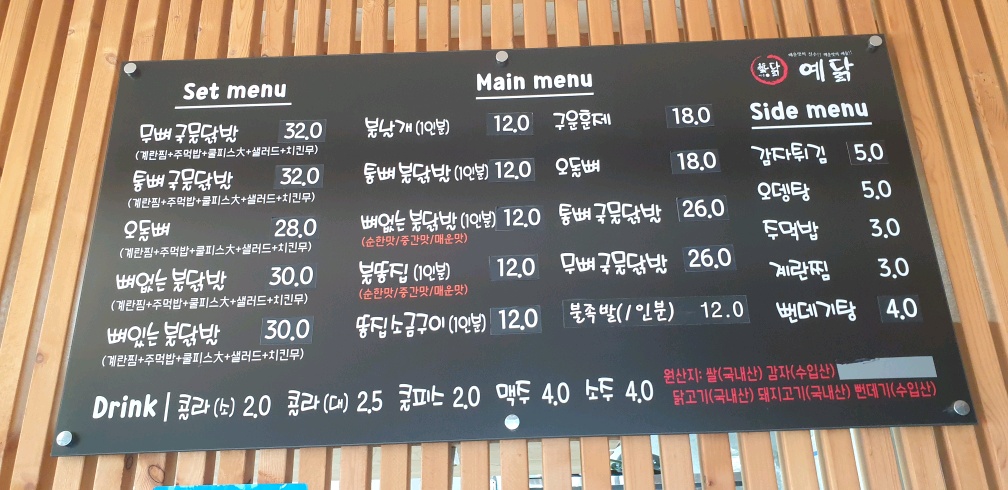 Set menu
무뼈국물닭발 32.0
(계란찜+주먹밥+쿨피스大+샐러드+치킨무)
통뼈국물닭발 32.0
(계란찜+주먹밥+쿨피스大+샐러드+치킨무)
오돌뼈 28.0
(계란찜+주먹밥+쿨피스大+샐러드+치킨무)
뼈없는 불닭발 30.0
(계란찜+주먹밥+쿨피스大+샐러드+치킨무)
뼈있는 불닭발 30.0
(계란찜+주먹밥+쿨피스大+샐러드+치킨무)
Main menu
불날개 (1인분) 12.0
통뼈 불닭발 (1인분) 12.0
뼈없는 불닭발 (1인분) 12.0
(순한맛/중간맛/매운맛)
불똥집 (1인분) 12.0
(순한맛/중간맛/매운맛)
똥집소금구이 (1인분) 12.0
구운훈제 18.0
오돌뼈 18.0
통뼈국물닭발 26.0
무뼈국물닭발 26.0
불족발(1인분) 12.0
예닭
Side menu
감자튀김 5.0
오뎅탕 5.0
주먹밥 3.0
계란찜 3.0
뻔데기탕 4.0
Drink | 콜라 (소) 2.0 콜라 (대) 2.5 쿨피스 2.0 맥주 4.0 소주 4.0
원산지: 쌀(국내산) 감자(수입산)
닭고기(국내산) 돼지고기(국내산) 뻔데기(수입산)